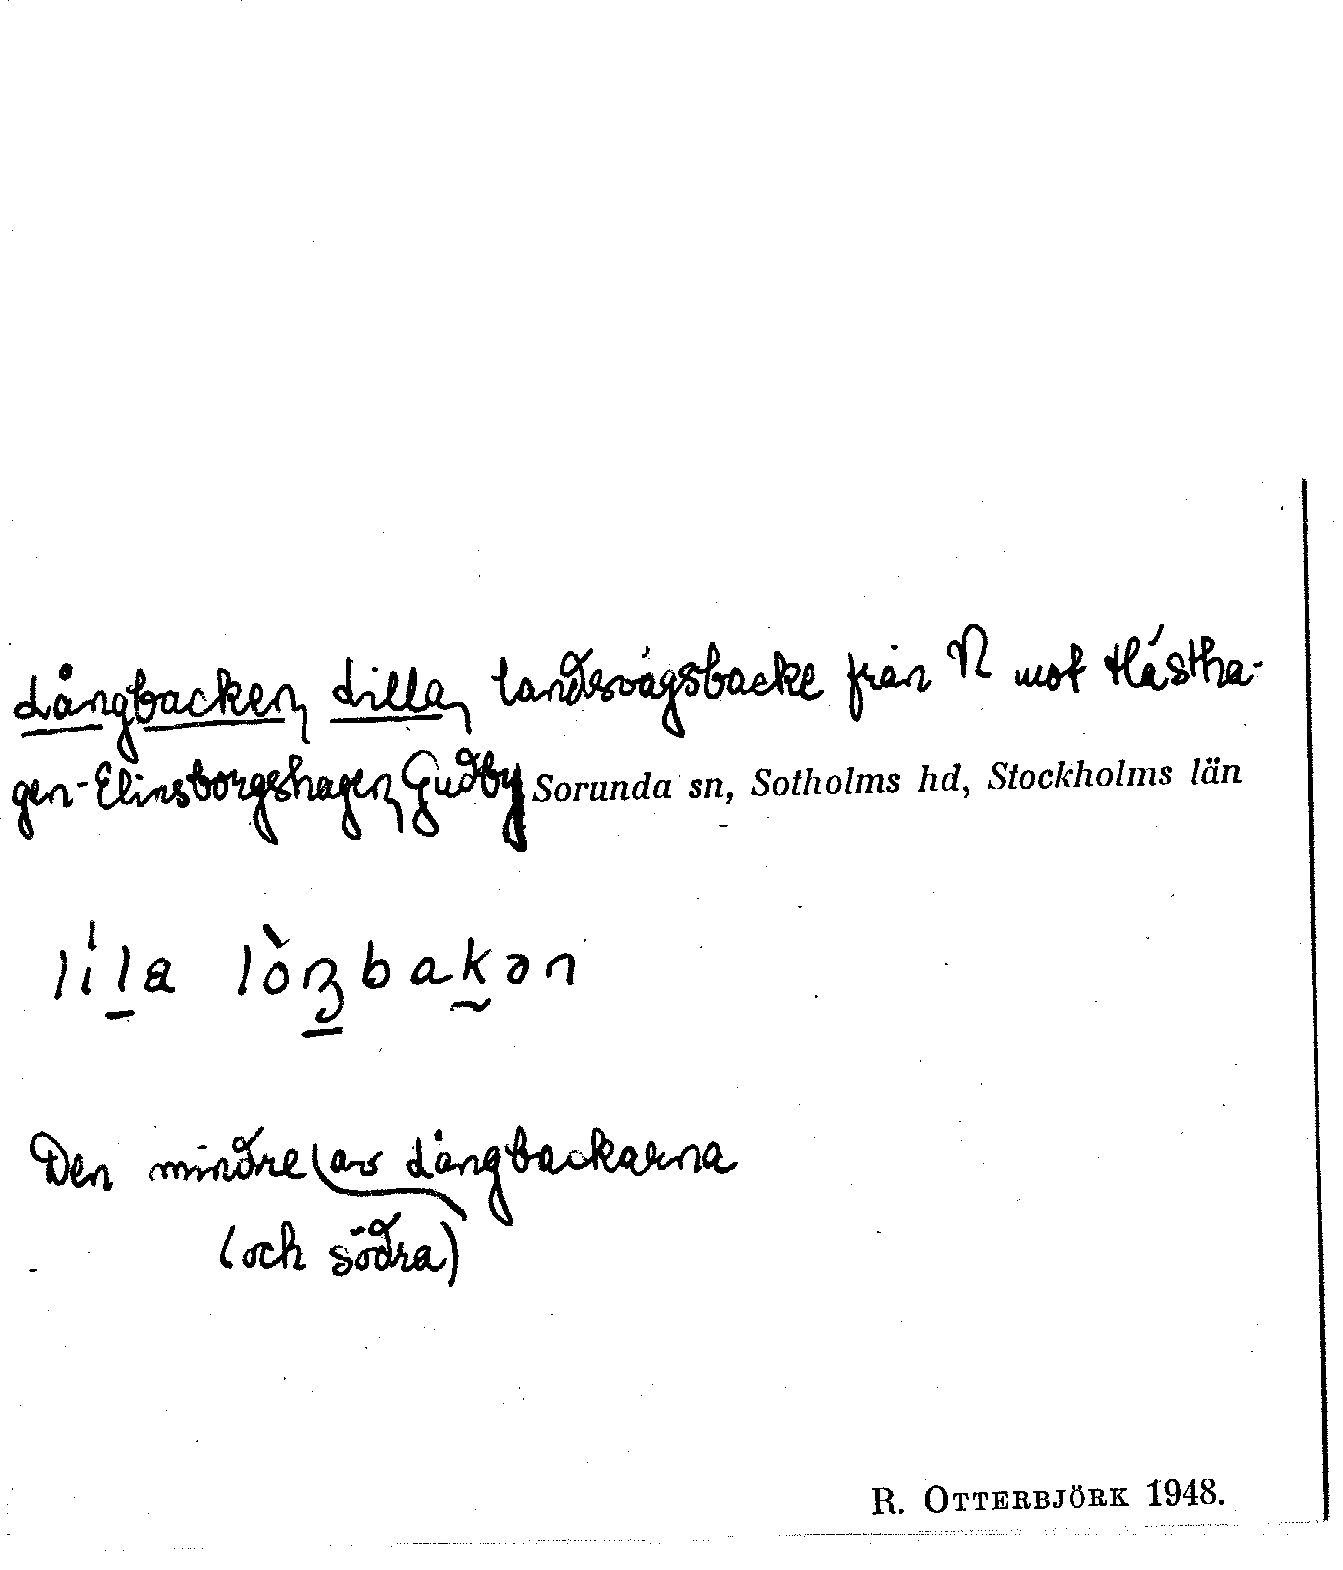 Långbacken, Lilla, landsvägsbacke från N mot Hästha-
gen-Elinsborgshagen, Gudby Sorunda sn, Sotholms hd, Stockholms län
lila lòŋbakən
Den mindre (av Långbackarna
(och södra)
R. OTTERBJÖRK 1948.